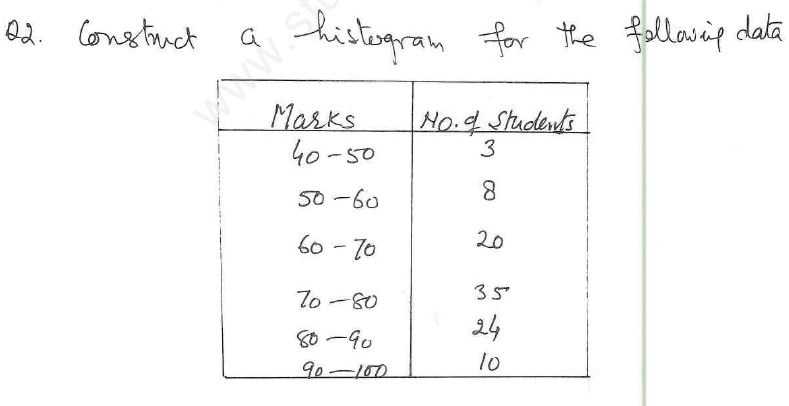 Q2. Construct a histogram for the following data
Marks No. of Students
40-50 3
50-60 8
60-70 20
70-80 35
80-90 24
90-100 10